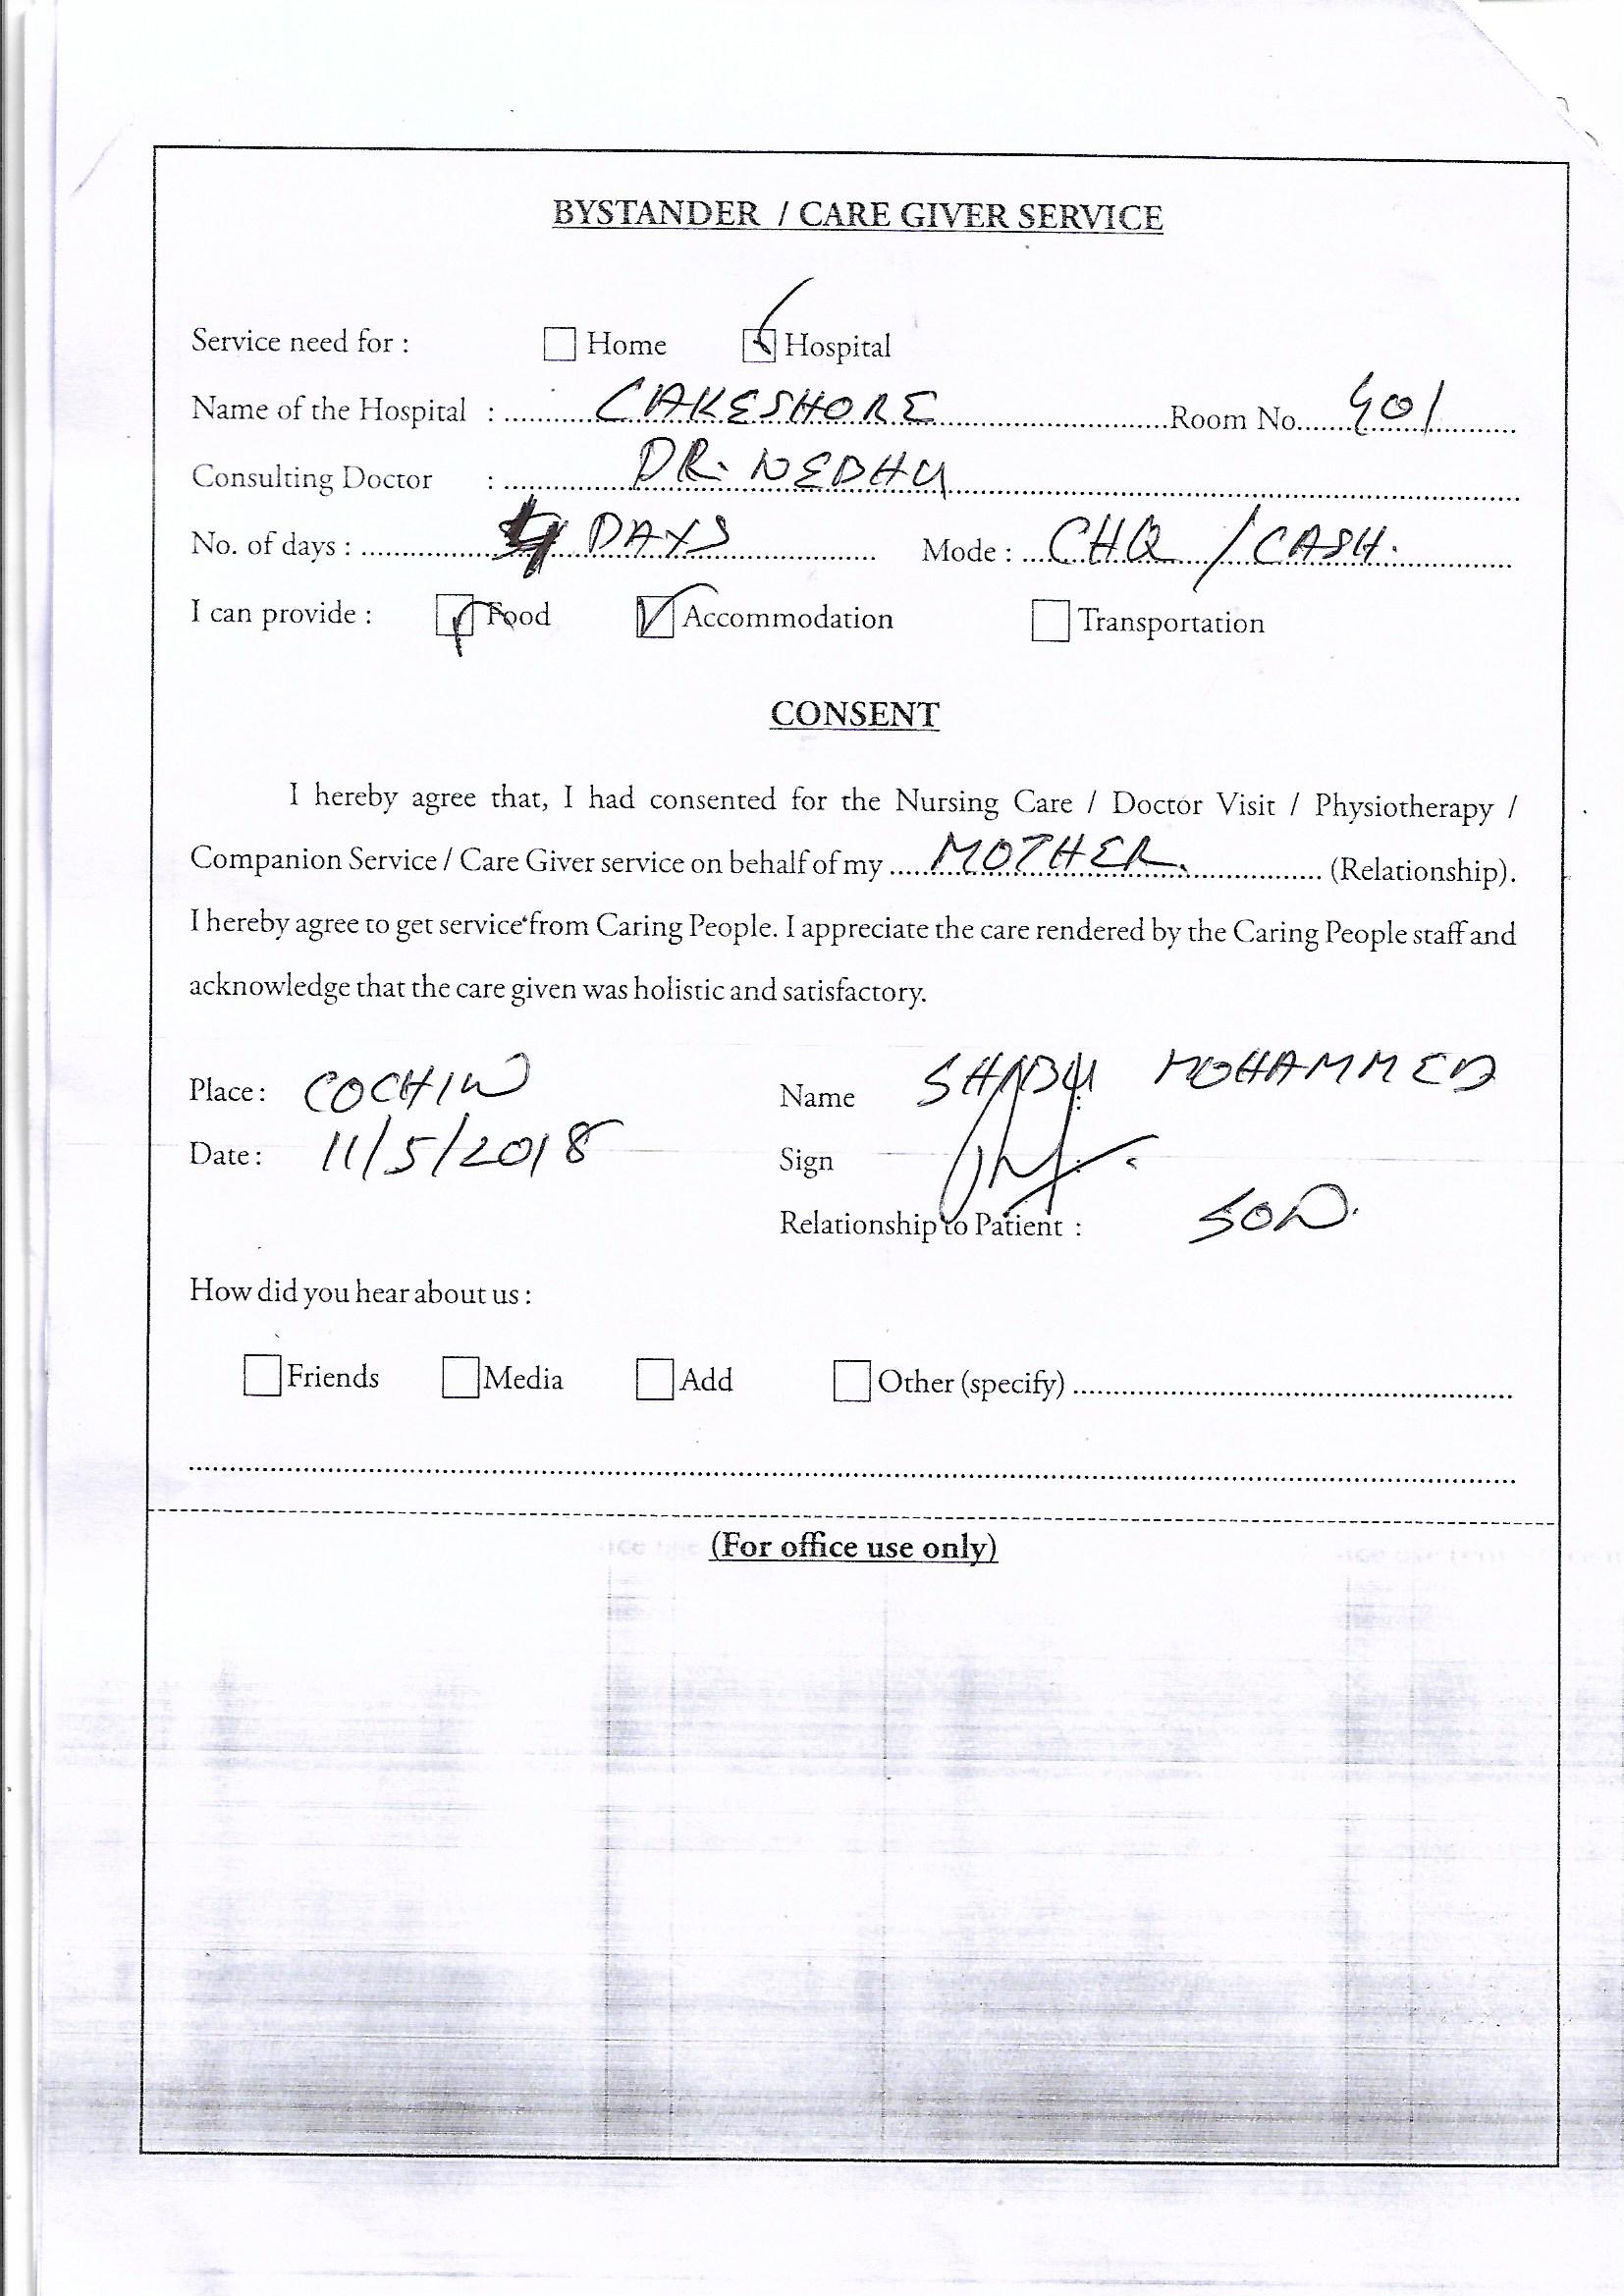 BYSTANDER / CARE GIVER SERVICE
Service need for : Home Hospital
Name of the Hospital : LAKESHORE Room No. 401
Consulting Doctor : DR. NEBHU
No. of days : DAYS Mode : CHQ / CASH.
I can provide : Food Accommodation Transportation
CONSENT
I hereby agree that, I had consented for the Nursing Care / Doctor Visit / Physiotherapy /
Companion Service / Care Giver service on behalf of my MOTHER. (Relationship).
I hereby agree to get service from Caring People. I appreciate the care rendered by the Caring People staff and
acknowledge that the care given was holistic and satisfactory.
Place : COCHIN Name : SHABU MOHAMMED
Date : 11/5/2018 Sign :
Relationship to Patient : SON.
How did you hear about us :
Friends Media Add Other (specify)
(For office use only)